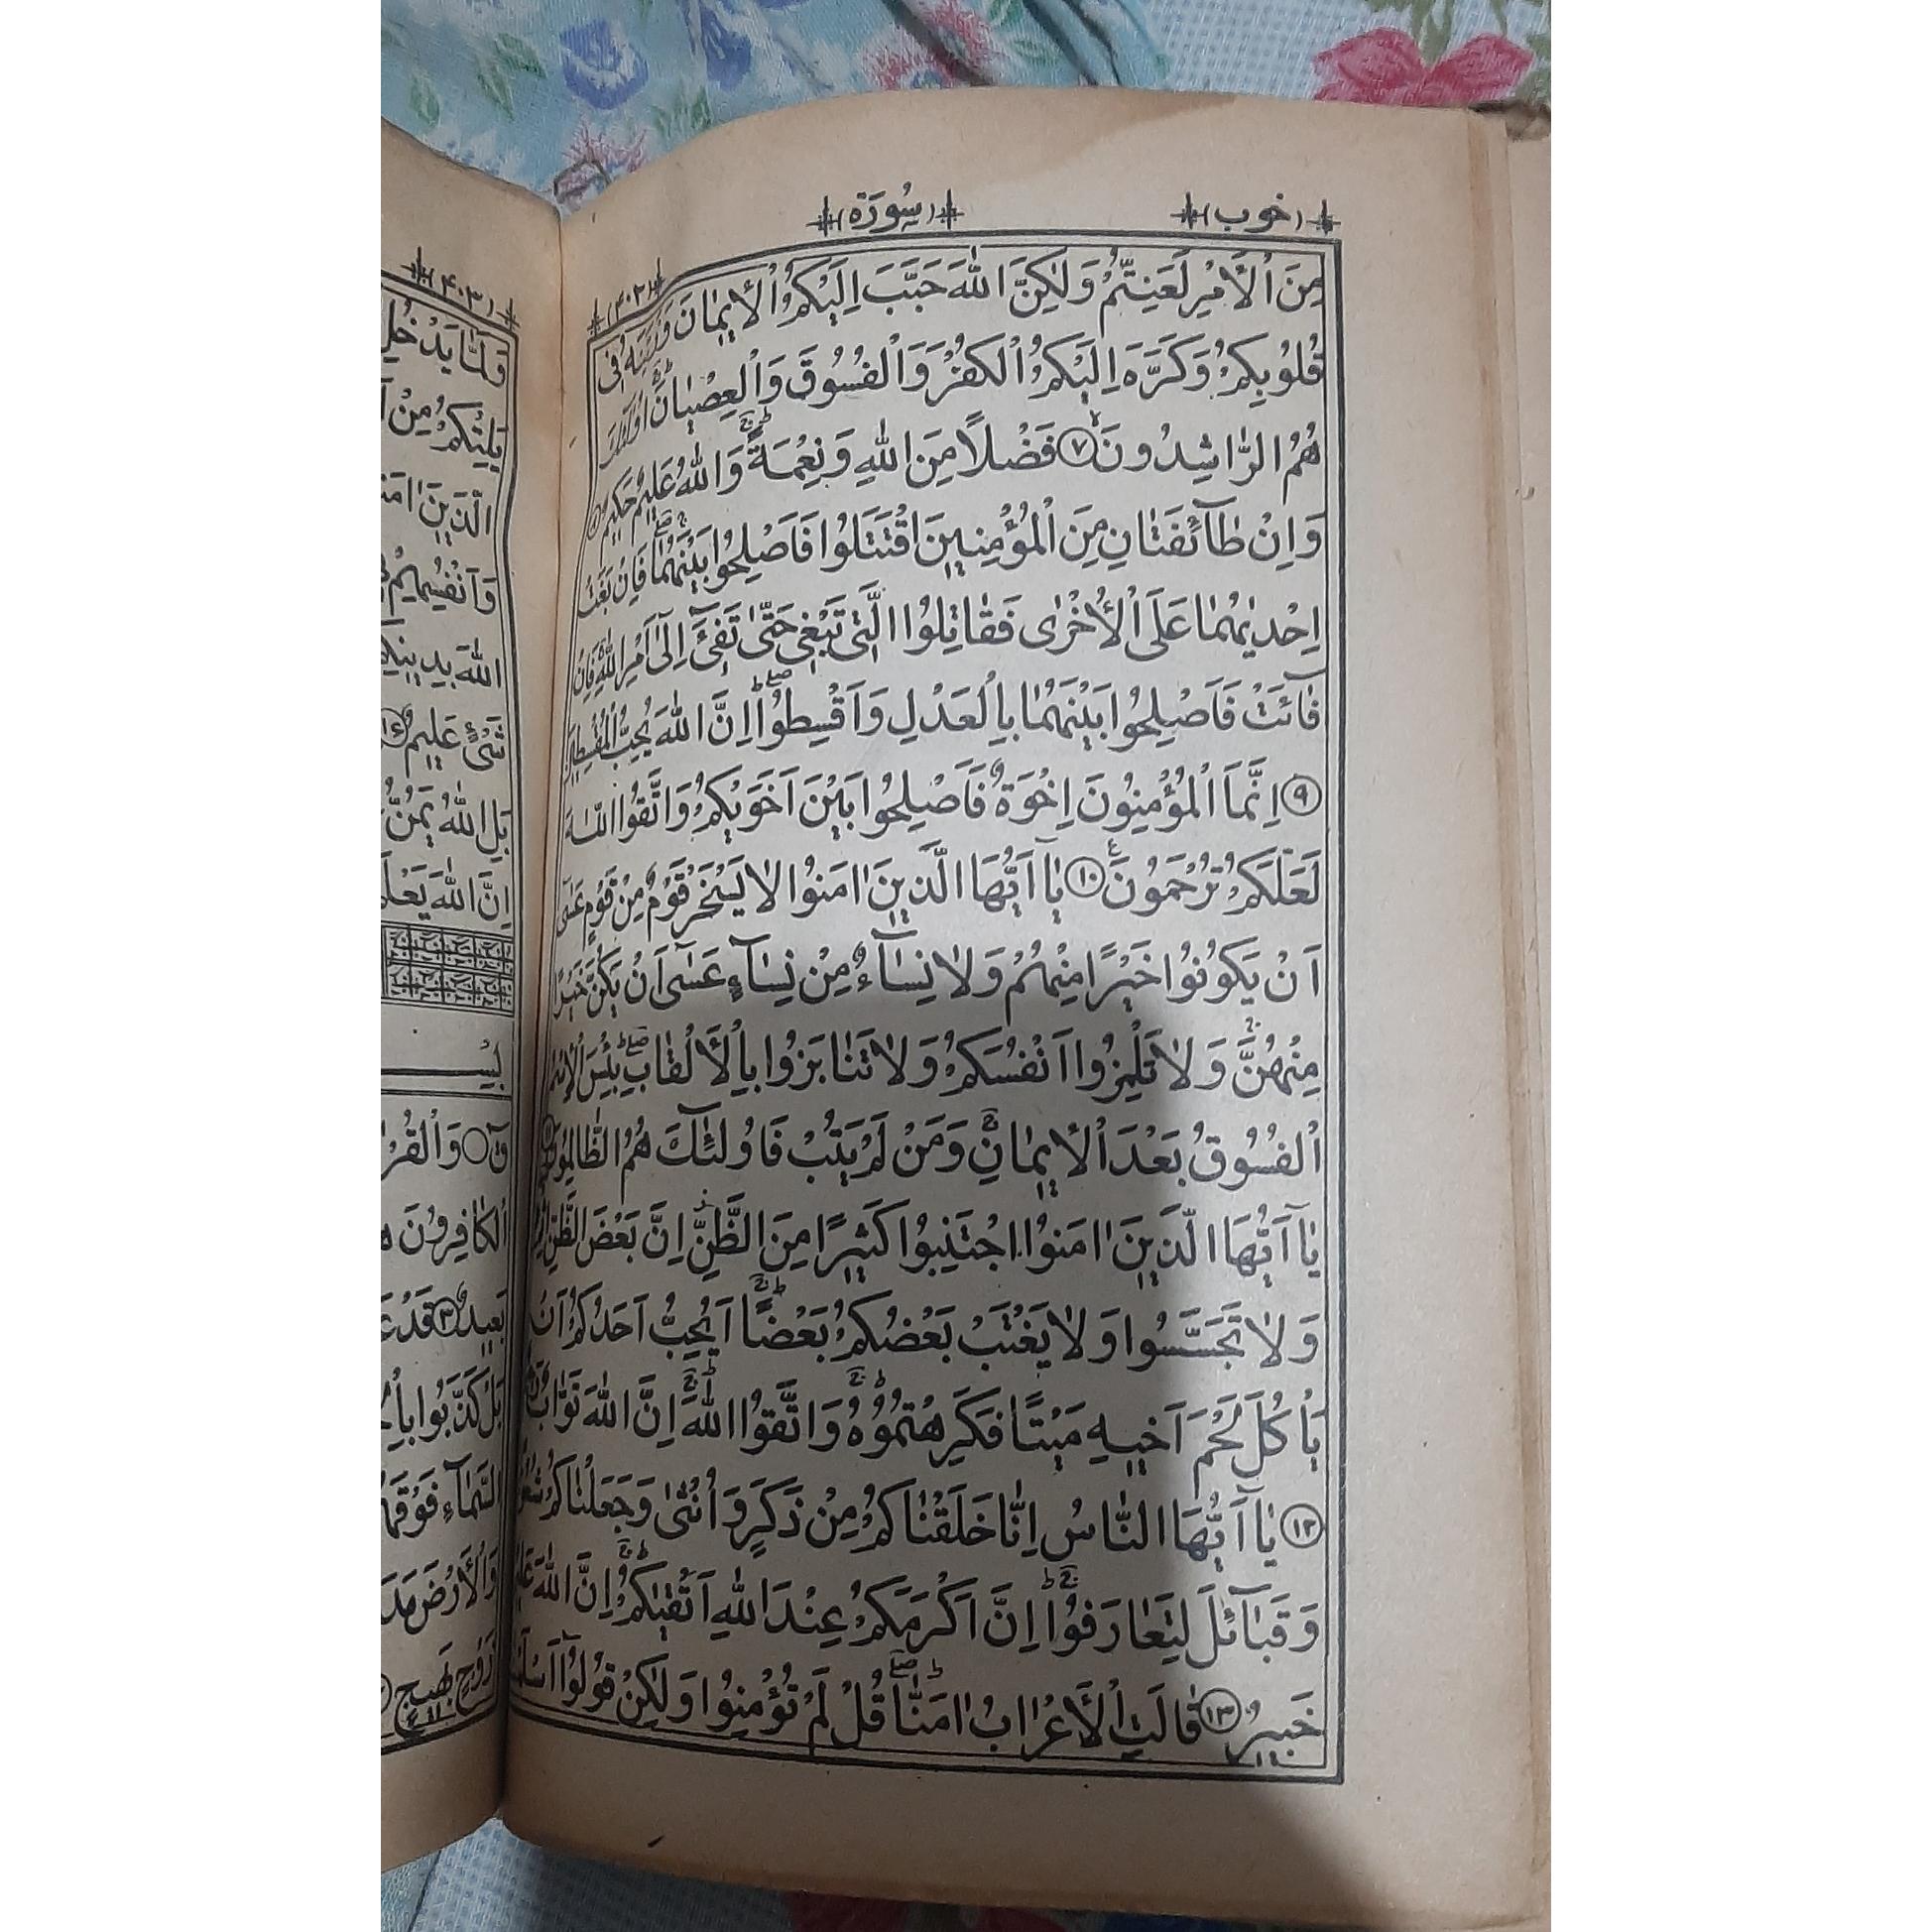 (خوب)
(سُورَة)
(۴۰۲)
مِنَ الْأَمْرِ لَعَنِتُّمْ وَلٰكِنَّ اللّٰهَ حَبَّبَ اِلَيْكُمُ الْاِيمٰانَ وَزَيَّنَهُ فِى
قُلُوبِكُمْ وَكَرَّهَ اِلَيْكُمُ الْكُفْرَ وَالْفُسُوقَ وَالْعِصْيٰانَ اُولٰئِكَ
هُمُ الرّٰاشِدُونَ ۷ فَضْلًا مِنَ اللّٰهِ وَنِعْمَةً وَاللّٰهُ عَلِيمٌ حَكِيمٌ
وَاِنْ طٰآئِفَتٰانِ مِنَ الْمُؤْمِنِينَ اقْتَتَلُوا فَاَصْلِحُوا بَيْنَهُمٰا فَاِنْ بَغَتْ
اِحْديٰهُمٰا عَلَى الْأُخْرٰى فَقٰاتِلُوا الَّتِى تَبْغِى حَتّٰى تَفِىٓءَ اِلٰٓى اَمْرِ اللّٰهِ فَاِنْ
فٰآئَتْ فَاَصْلِحُوا بَيْنَهُمٰا بِالْعَدْلِ وَاَقْسِطُوا اِنَّ اللّٰهَ يُحِبُّ الْمُقْسِطِينَ
۹ اِنَّمَا الْمُؤْمِنُونَ اِخْوَةٌ فَاَصْلِحُوا بَيْنَ اَخَوَيْكُمْ وَاتَّقُوا اللّٰهَ
لَعَلَّكُمْ تُرْحَمُونَ ۱۰ يٰآ اَيُّهَا الَّذِينَ اٰمَنُوا لٰا يَسْخَرْ قَوْمٌ مِنْ قَوْمٍ عَسٰٓى
اَنْ يَكُونُوا خَيْرًا مِنْهُمْ وَلٰا نِسٰآءٌ مِنْ نِسٰآءٍ عَسٰٓى اَنْ يَكُنَّ خَيْرًا
مِنْهُنَّ وَلٰا تَلْمِزُوا اَنْفُسَكُمْ وَلٰا تَنٰابَزُوا بِالْأَلْقٰابِ بِئْسَ الْاِسْمُ
الْفُسُوقُ بَعْدَ الْاِيمٰانِ وَمَنْ لَمْ يَتُبْ فَاُولٰٓئِكَ هُمُ الظّٰالِمُونَ
يٰآ اَيُّهَا الَّذِينَ اٰمَنُوا اجْتَنِبُوا كَثِيرًا مِنَ الظَّنِّ اِنَّ بَعْضَ الظَّنِّ
وَلٰا تَجَسَّسُوا وَلٰا يَغْتَبْ بَعْضُكُمْ بَعْضًا اَيُحِبُّ اَحَدُكُمْ اَنْ
يَاْكُلَ لَحْمَ اَخِيهِ مَيْتًا فَكَرِهْتُمُوهُ وَاتَّقُوا اللّٰهَ اِنَّ اللّٰهَ تَوّٰابٌ
۱۲ يٰآ اَيُّهَا النّٰاسُ اِنّٰا خَلَقْنٰاكُمْ مِنْ ذَكَرٍ وَاُنْثٰى وَجَعَلْنٰاكُمْ
وَقَبٰآئِلَ لِتَعٰارَفُوا اِنَّ اَكْرَمَكُمْ عِنْدَ اللّٰهِ اَتْقٰيكُمْ اِنَّ اللّٰهَ
خَبِيرٌ ۱۳ قٰالَتِ الْأَعْرٰابُ اٰمَنّٰا قُلْ لَمْ تُؤْمِنُوا وَلٰكِنْ قُولُوٓا
(۴۰۳)
يَدْخُلِ
يَلِتْكُمْ مِنْ
الَّذِينَ
وَاَنْفُسِهِمْ
اللّٰهَ بِدِينِكُمْ
شَىْءٍ عَلِيمٌ
بَلِ اللّٰهُ يَمُنُّ
اِنَّ اللّٰهَ يَعْلَمُ
قٓ وَالْقُرْ
الْكٰافِرُونَ
بَعِيدٌ ۳ قَدْ
بَلْ كَذَّبُوا
السَّمٰآءِ فَوْقَهُمْ
وَالْأَرْضَ
زَوْجٍ بَهِيجٍ